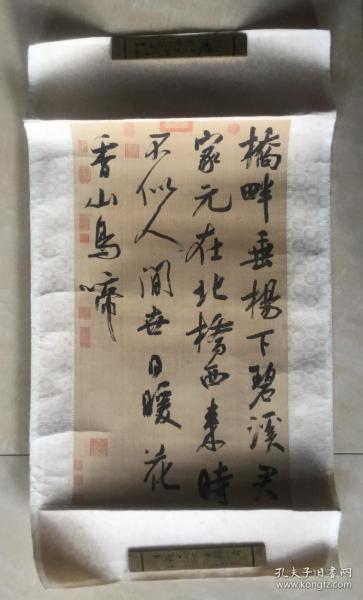 橋畔垂楊下碧溪君
家元在北橋西來時
不似人間世日暖花
香山鳥啼
孔夫子旧书网
www.kongfz.com